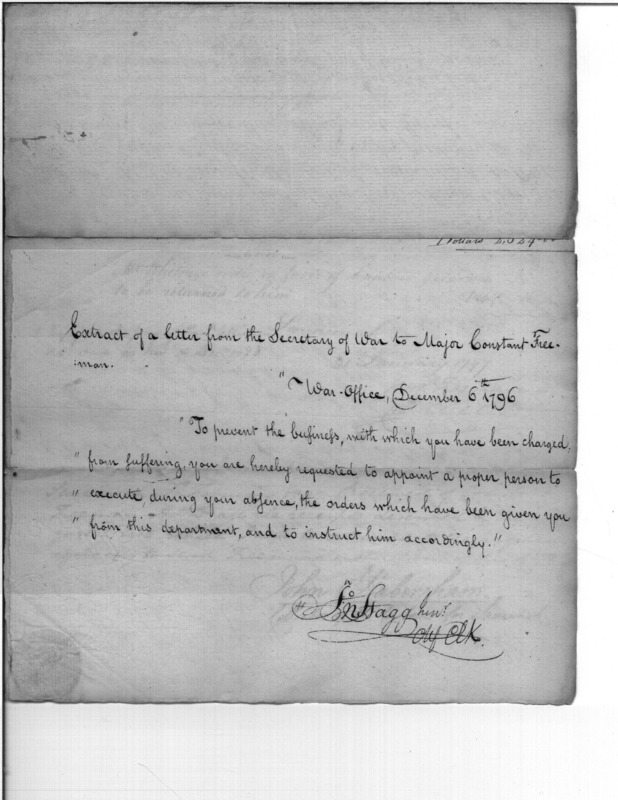 Extract of a letter from the Secretary of War to Major Constant Free-
:man.
"War-Office, December 6th 1796
"To prevent the business, with which you have been charged,
" from suffering, you are hereby requested to appoint a proper person to
" execute, during your absence, the orders which have been given you
" from this department, and to instruct him accordingly."
Jno Stagg Junr
Clk.
to be returned to him
John Habersham